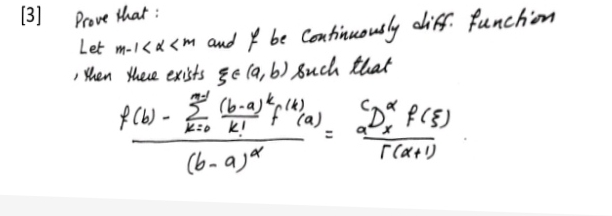 [3] Prove that :
Let m-1<α<m and f be Continuously diff. function
, then there exists ξ∈(a,b) such that
\frac{f(b) - \sum_{k=0}^{m-1} \frac{(b-a)^k}{k!} f^{(k)}(a)}{(b-a)^α} = \frac{{}^{C}_{a}D^{α}_{x} f(ξ)}{Γ(α+1)} .